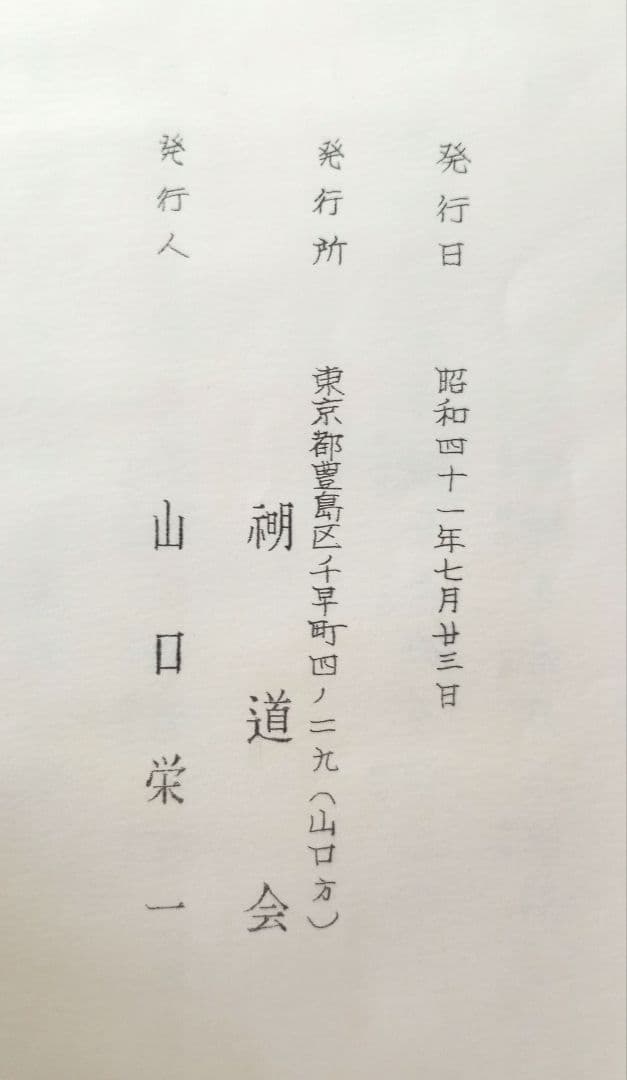 発行日 昭和四十一年七月廿三日
発行所 東京都豊島区千早町四ノ二九（山口方）
道会
発行人 山口栄一